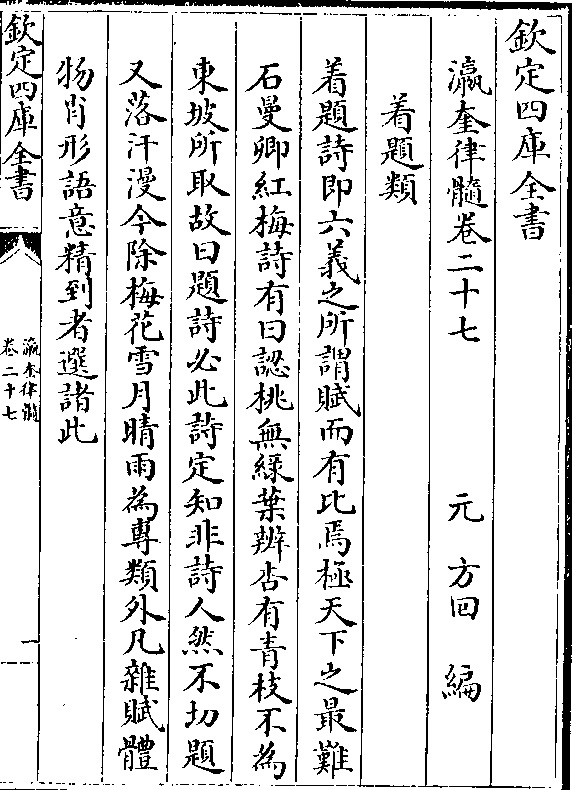 欽定四庫全書
瀛奎律髓卷二十七　元　方回　編
着題類
着題詩即六義之所謂賦而有比焉極天下之最難
石曼卿紅梅詩有曰認桃無緑葉辨杏有青枝不為
東坡所取故曰題詩必此詩定知非詩人然不切題
又落汗漫今除梅花雪月晴雨為專類外凡雜賦體
物肖形語意精到者選諸此
欽定四庫全書
瀛奎律髓
卷二十七
一